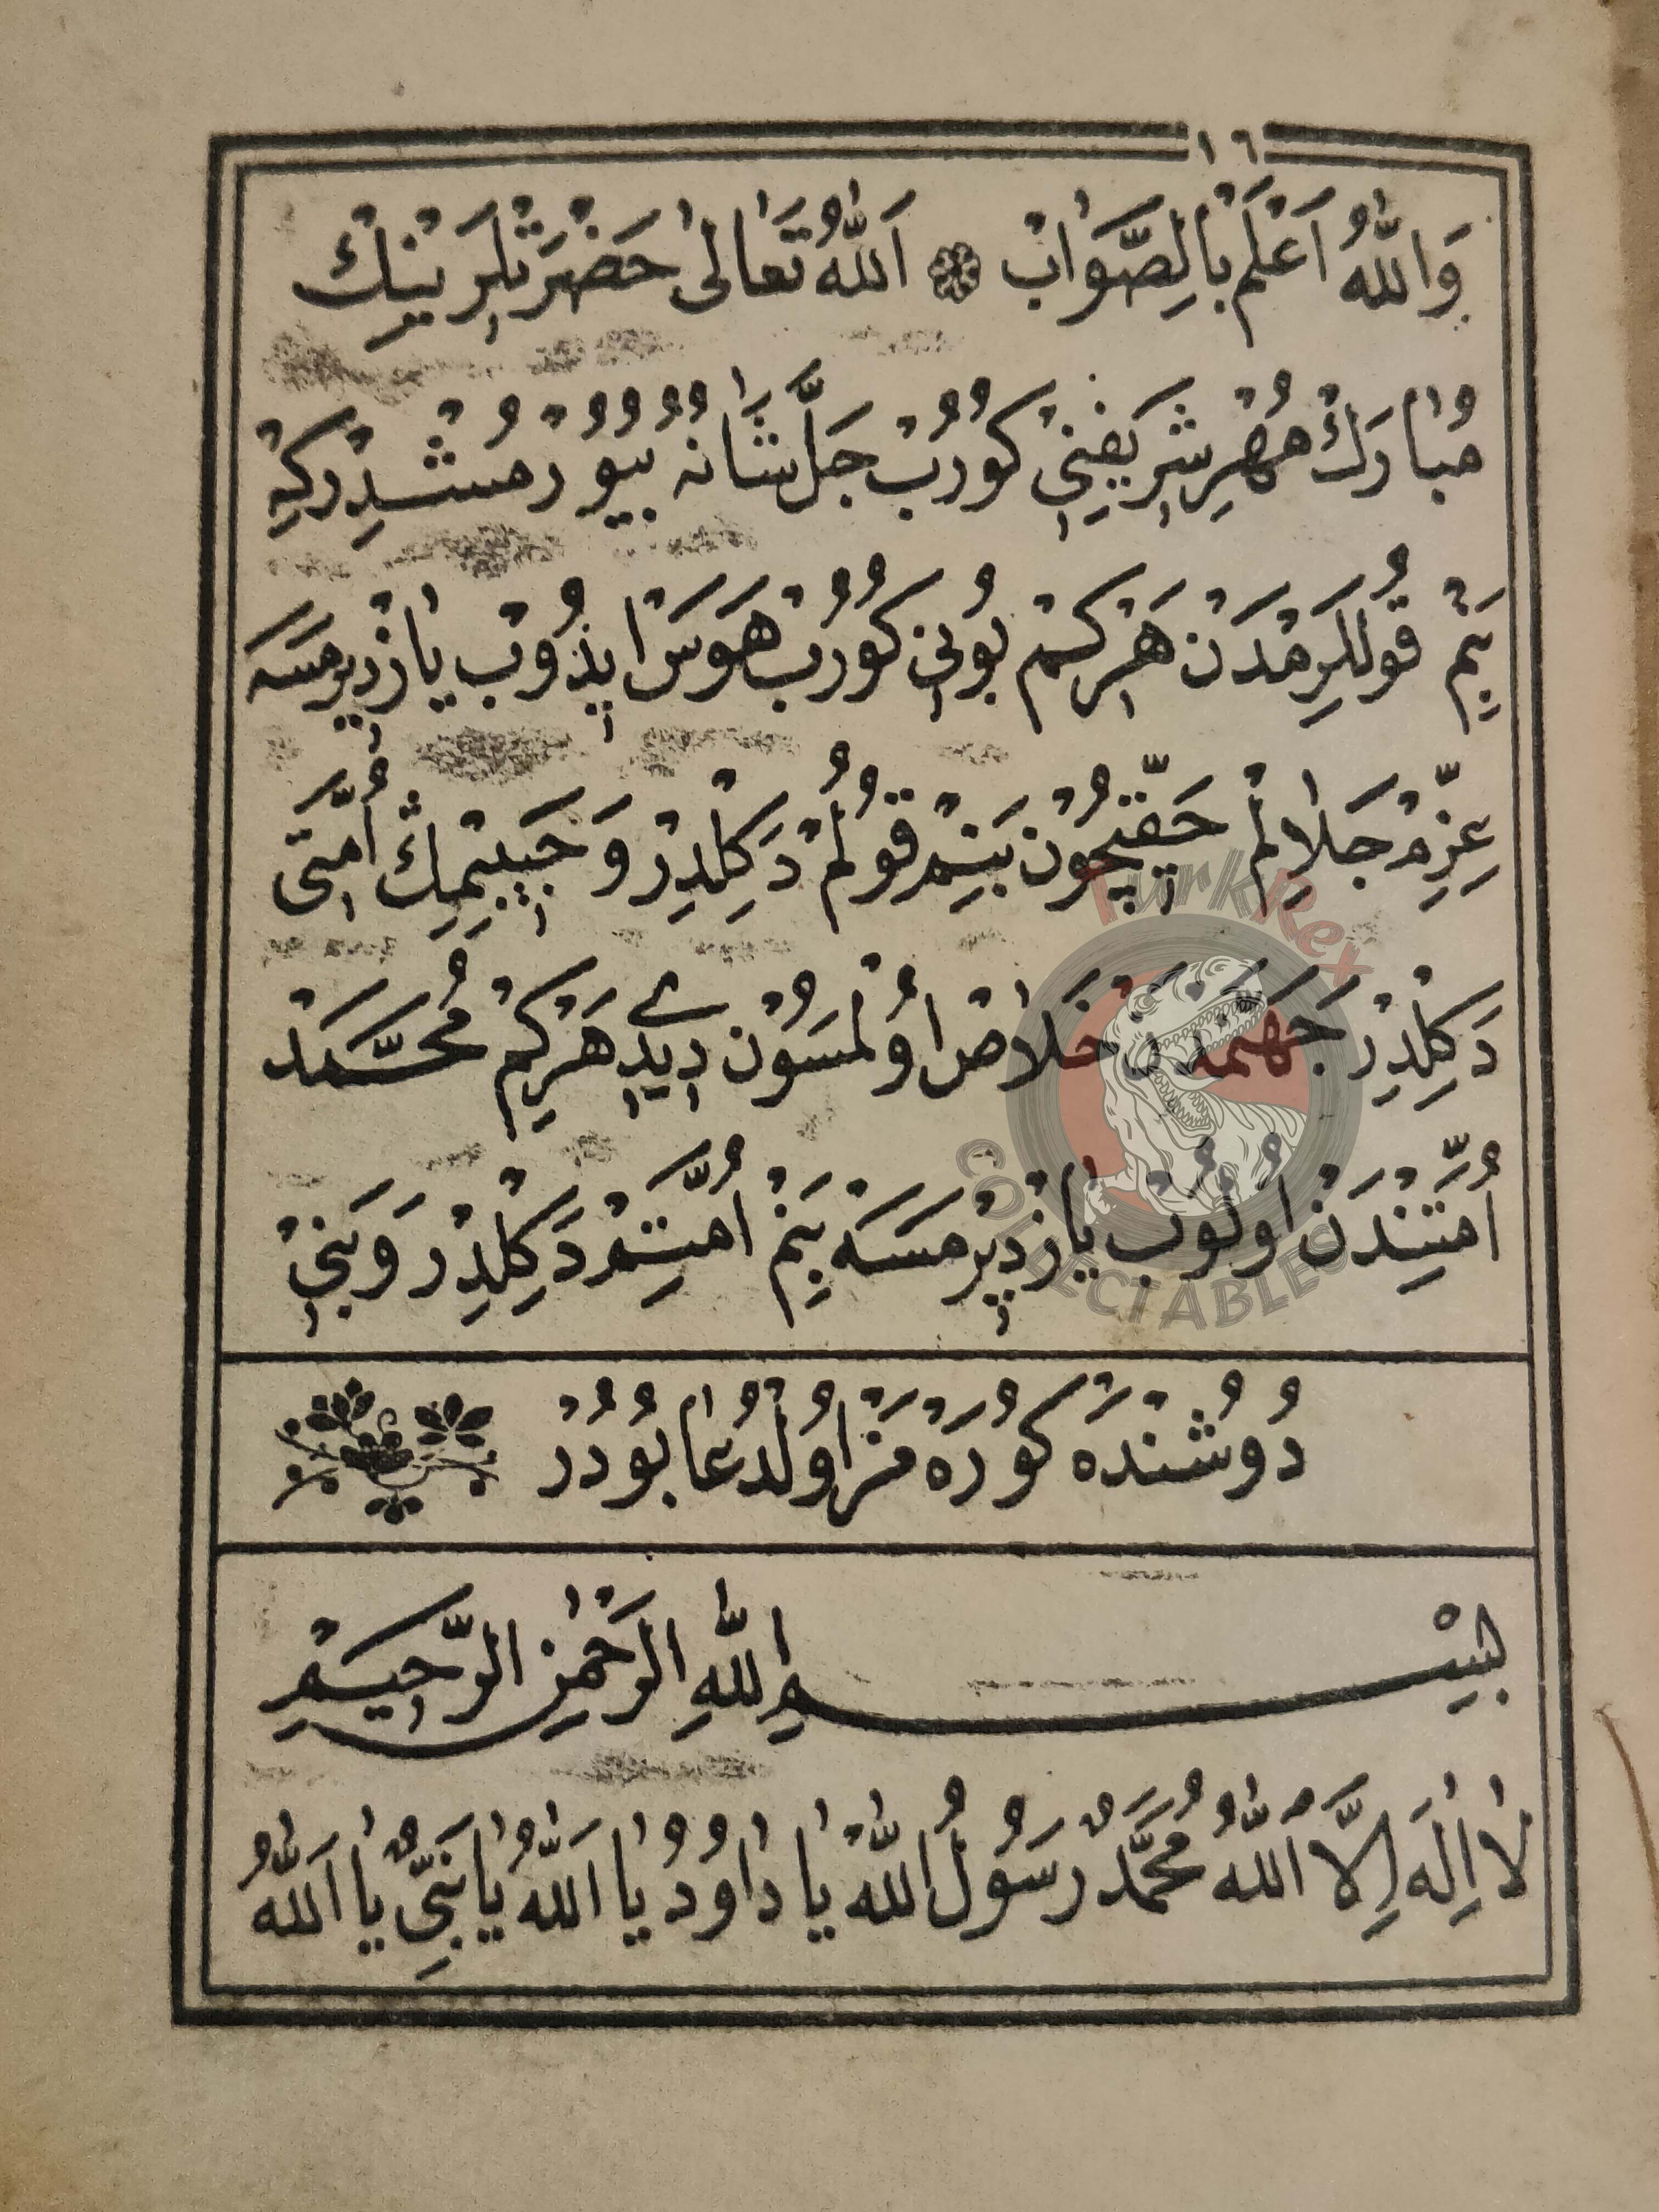 ١٦
وَاللّٰهُ اَعْلَمْ بَالِصَّوَابْ ❁ اَللّٰهُ تَعَالٰى حَضْرَتْلِرِينِكْ
مُبَارَكْ مُهْرِ شَرِيفِنِى كُورُبْ جَلَّ شَانُهُ بُيُورْمُشْدِرْكِهْ
بَنِمْ قُوللَرِمْدَنْ هَرْكِمْ بُونِى كُورُبْ هَوَسْ اِيدُوبْ يَازْدِيرْمَسَهْ
عِزِّمْ جَلَالِمْ حَقِّيچُونْ بَنِمْ قُولُمْ دَكِلْدِرْ وَ حَبِيبِمِكْ اُمَّتِى
دَكِلْدِرْ جَهَنَّمْدَنْ خَلَاصْ اُولْمَسُونْ دِيدِى هَرْكِمْ مُحَمَّدْ
اُمَّتِنْدَنْ اُولُوبْ يَازْدِيرْمَسَهْ بَنِمْ اُمَّتِمْ دَكِلْدِرْ وَبَنِى
دُوشُنْدَهْ كُورَهْمَزْ اُولْدُعَا بُودُرْ
بِسْمِ اللّٰهِ الرَّحْمٰنِ الرَّحِيمِ
لَا اِلٰهَ اِلَّا اللّٰهُ مُحَمَّدٌ رَسُولُ اللّٰهْ يَا دَاوُودُ يَا اَللّٰهُ يَا نَبِىُّ يَا اَللّٰهُ
TurkRex
COLLECTABLES